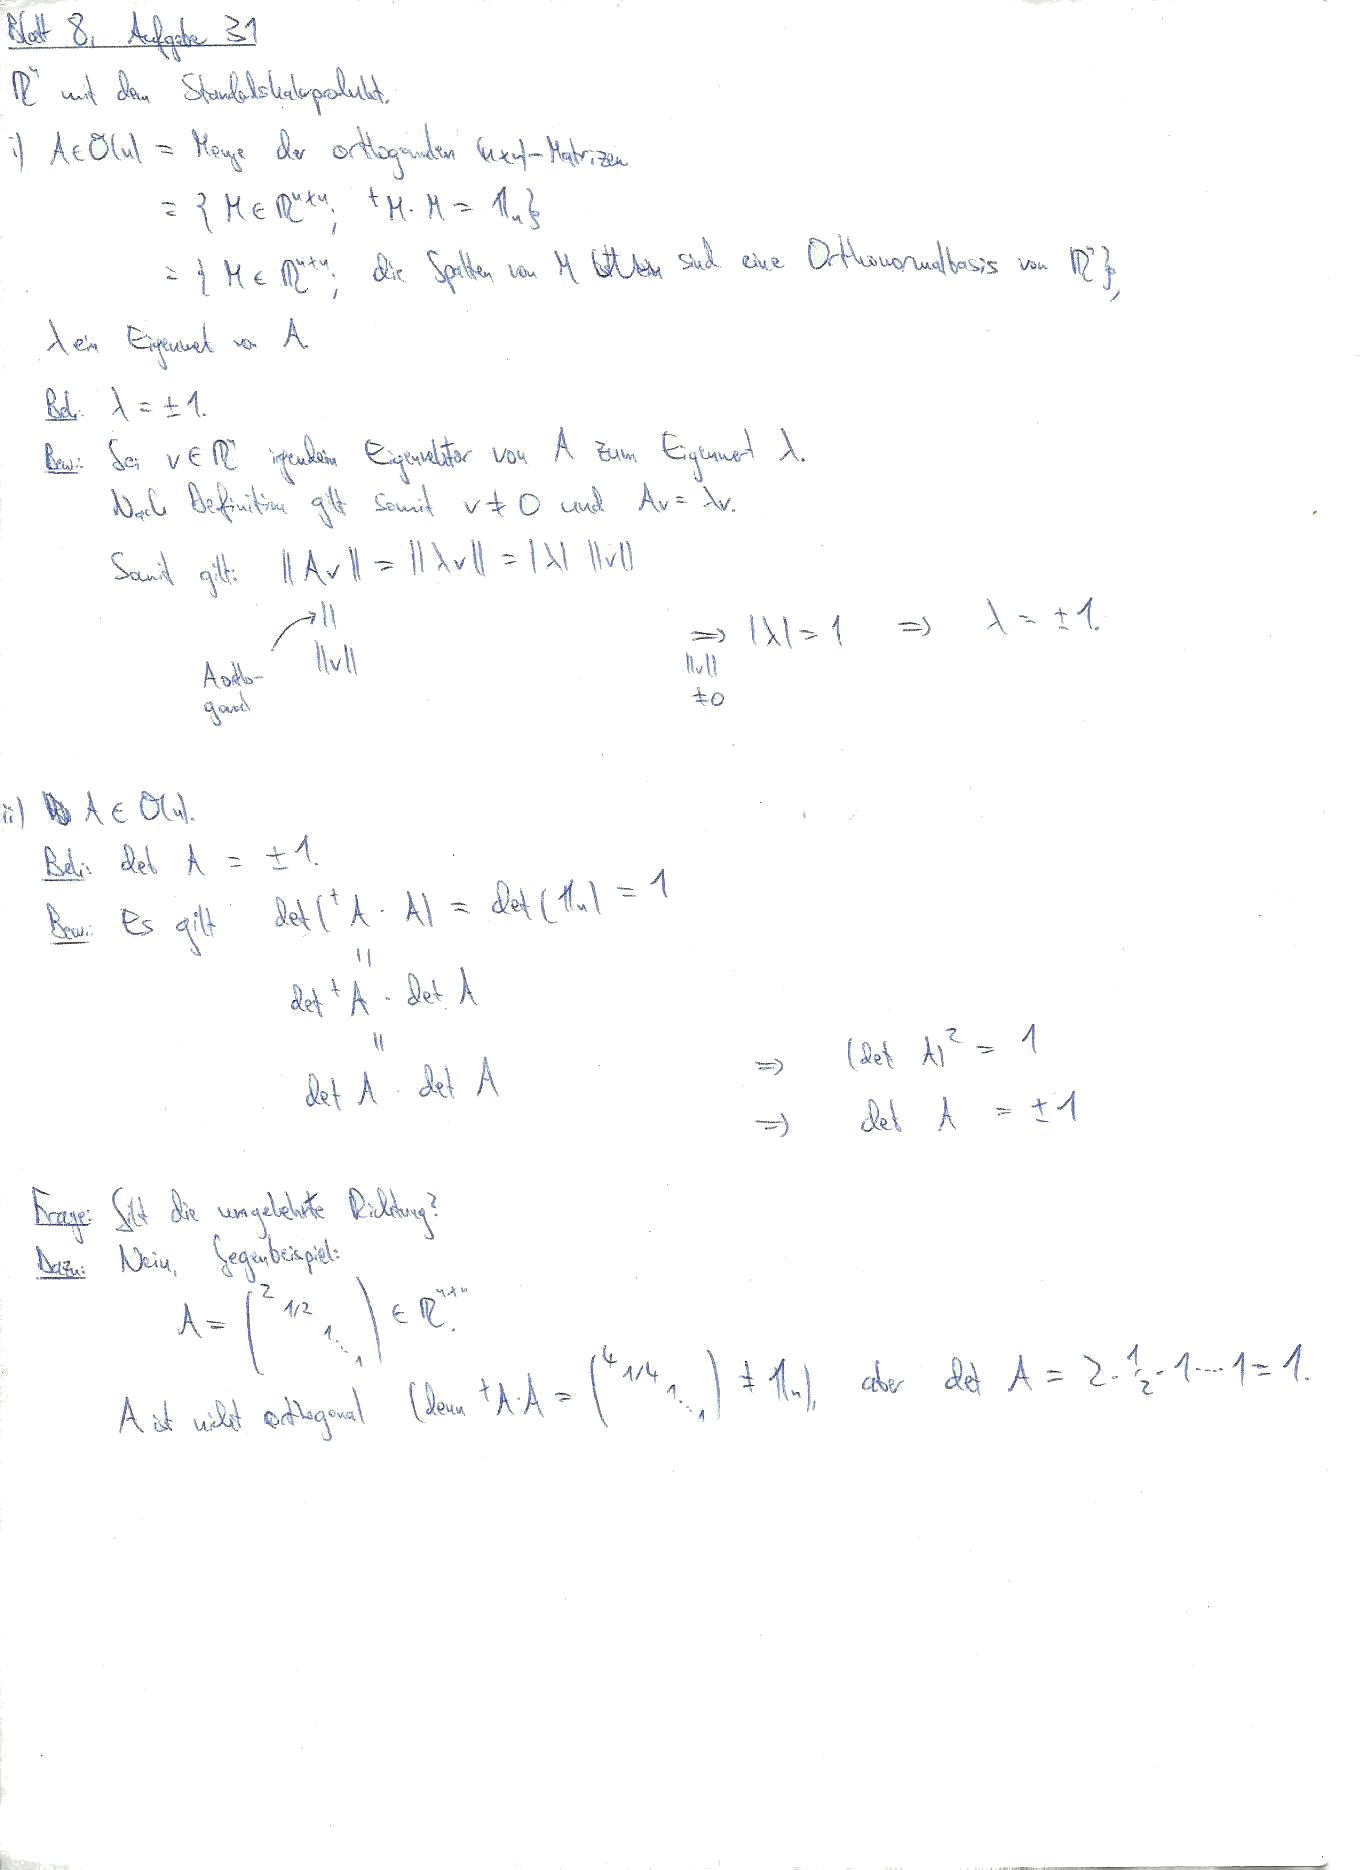 Blatt 8, Aufgabe 31
ℝⁿ mit dem Standardskalarprodukt.
i) A ∈ O(n) = Menge der orthogonalen (n×n)-Matrizen
= { M ∈ ℝⁿˣⁿ; ᵗM · M = 1ₙ }
= { M ∈ ℝⁿˣⁿ; die Spalten von M sind eine Orthonormalbasis von ℝⁿ },
λ ein Eigenwert von A.
Beh.: λ = ±1.
Bew.: Sei v ∈ ℝⁿ irgendein Eigenvektor von A zum Eigenwert λ.
Nach Definition gilt somit v ≠ 0 und Av = λv.
Somit gilt: ||Av|| = ||λv|| = |λ| ||v||
||
||v||
A ortho-
gonal
⇒ |λ| = 1 ⇒ λ = ±1.
||v||
≠0
ii) A ∈ O(n).
Beh.: det A = ±1.
Bew.: Es gilt det(ᵗA · A) = det(1ₙ) = 1
||
det ᵗA · det A
||
det A · det A
⇒ (det A)² = 1
⇒ det A = ±1
Frage: Gilt die umgekehrte Richtung?
Dazu: Nein, Gegenbeispiel:
A = ( 2 1/2 1 ⋱ 1 ) ∈ ℝⁿˣⁿ.
A ist nicht orthogonal (denn ᵗA·A = ( 4 1/4 1 ⋱ 1 ) ≠ 1ₙ), aber det A = 2 · 1/2 · 1 ··· 1 = 1.